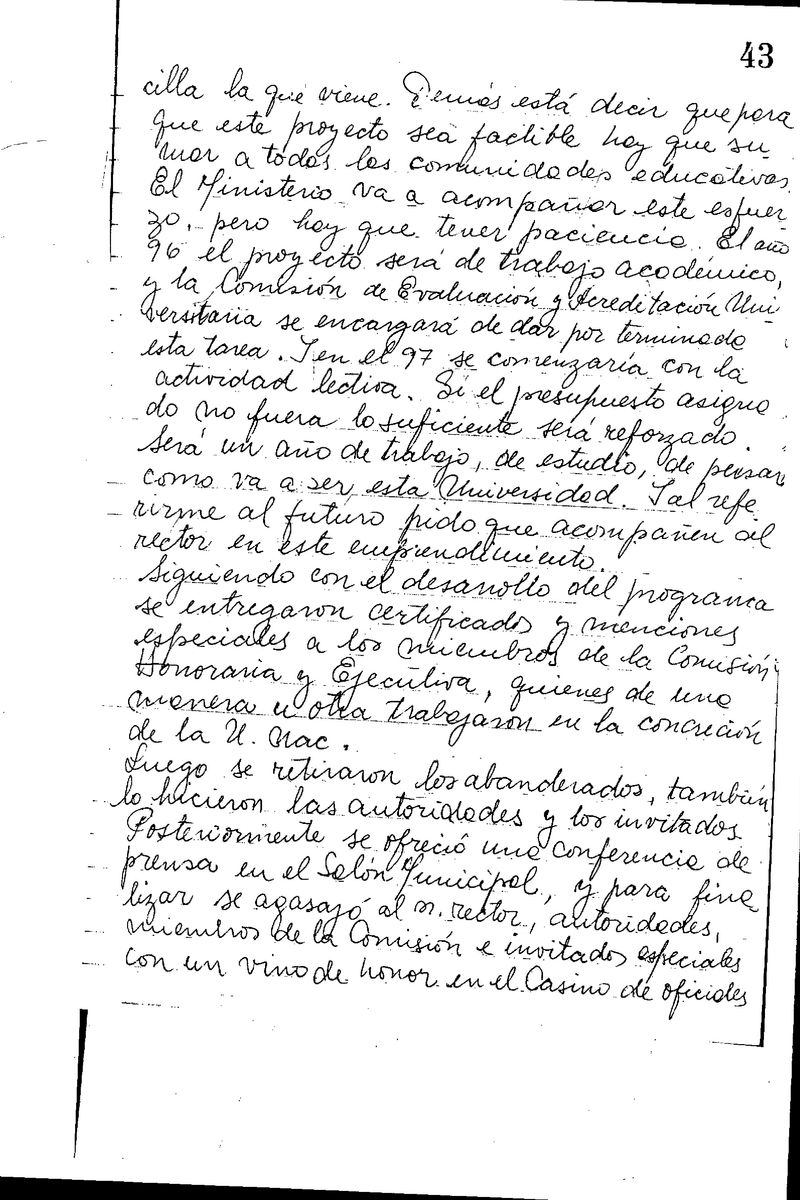 43
cilla la que viene. Demás está decir que para
que este proyecto sea factible hay que su-
mar a todas las comunidades educativas.
El Ministerio va a acompañar este esfuer
zo, pero hay que tener paciencia. El año
96 el proyecto será de trabajo académico,
y la Comisión de Evaluación y Acreditación Uni
versitaria se encargará de dar por terminada
esta tarea. Y en el 97 se comenzaría con la
actividad lectiva. Si el presupuesto asigna
do no fuera lo suficiente será reforzado.
Será un año de trabajo, de estudio, de pensar
como va a ser esta Universidad. Y al refe
rirme al futuro pido que acompañen al
rector en este emprendimiento.
Siguiendo con el desarrollo del programa
se entregaron certificados y menciones
especiales a los miembros de la Comisión
Honoraria y Ejecutiva, quienes de una
manera u otra trabajaron en la concreción
de la U. Nac.
Luego se retiraron los abanderados, también
lo hicieron las autoridades y los invitados.
Posteriormente se ofreció una conferencia de
prensa en el Salón Municipal, y para fina
lizar se agasajó al n. rector, autoridades,
miembros de la Comisión e invitados especiales
con un vino de honor en el Casino de oficiales